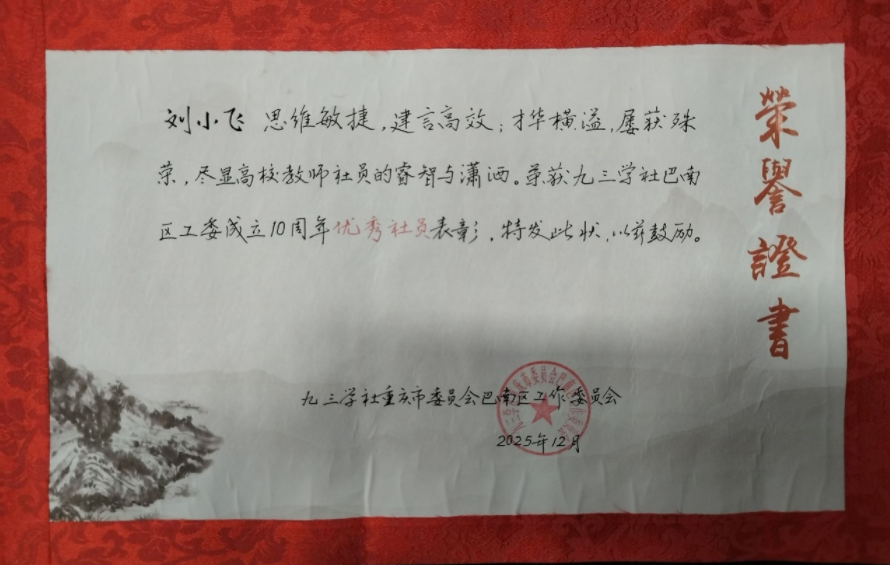 榮譽證書
刘小飞 思维敏捷，建言高效；才华横溢，屡获殊
荣，尽显高校教师社员的睿智与潇洒。荣获九三学社巴南
区工委成立10周年优秀社员表彰，特发此状，以兹鼓励。
九三学社重庆市委员会巴南区工作委员会
2025年12月